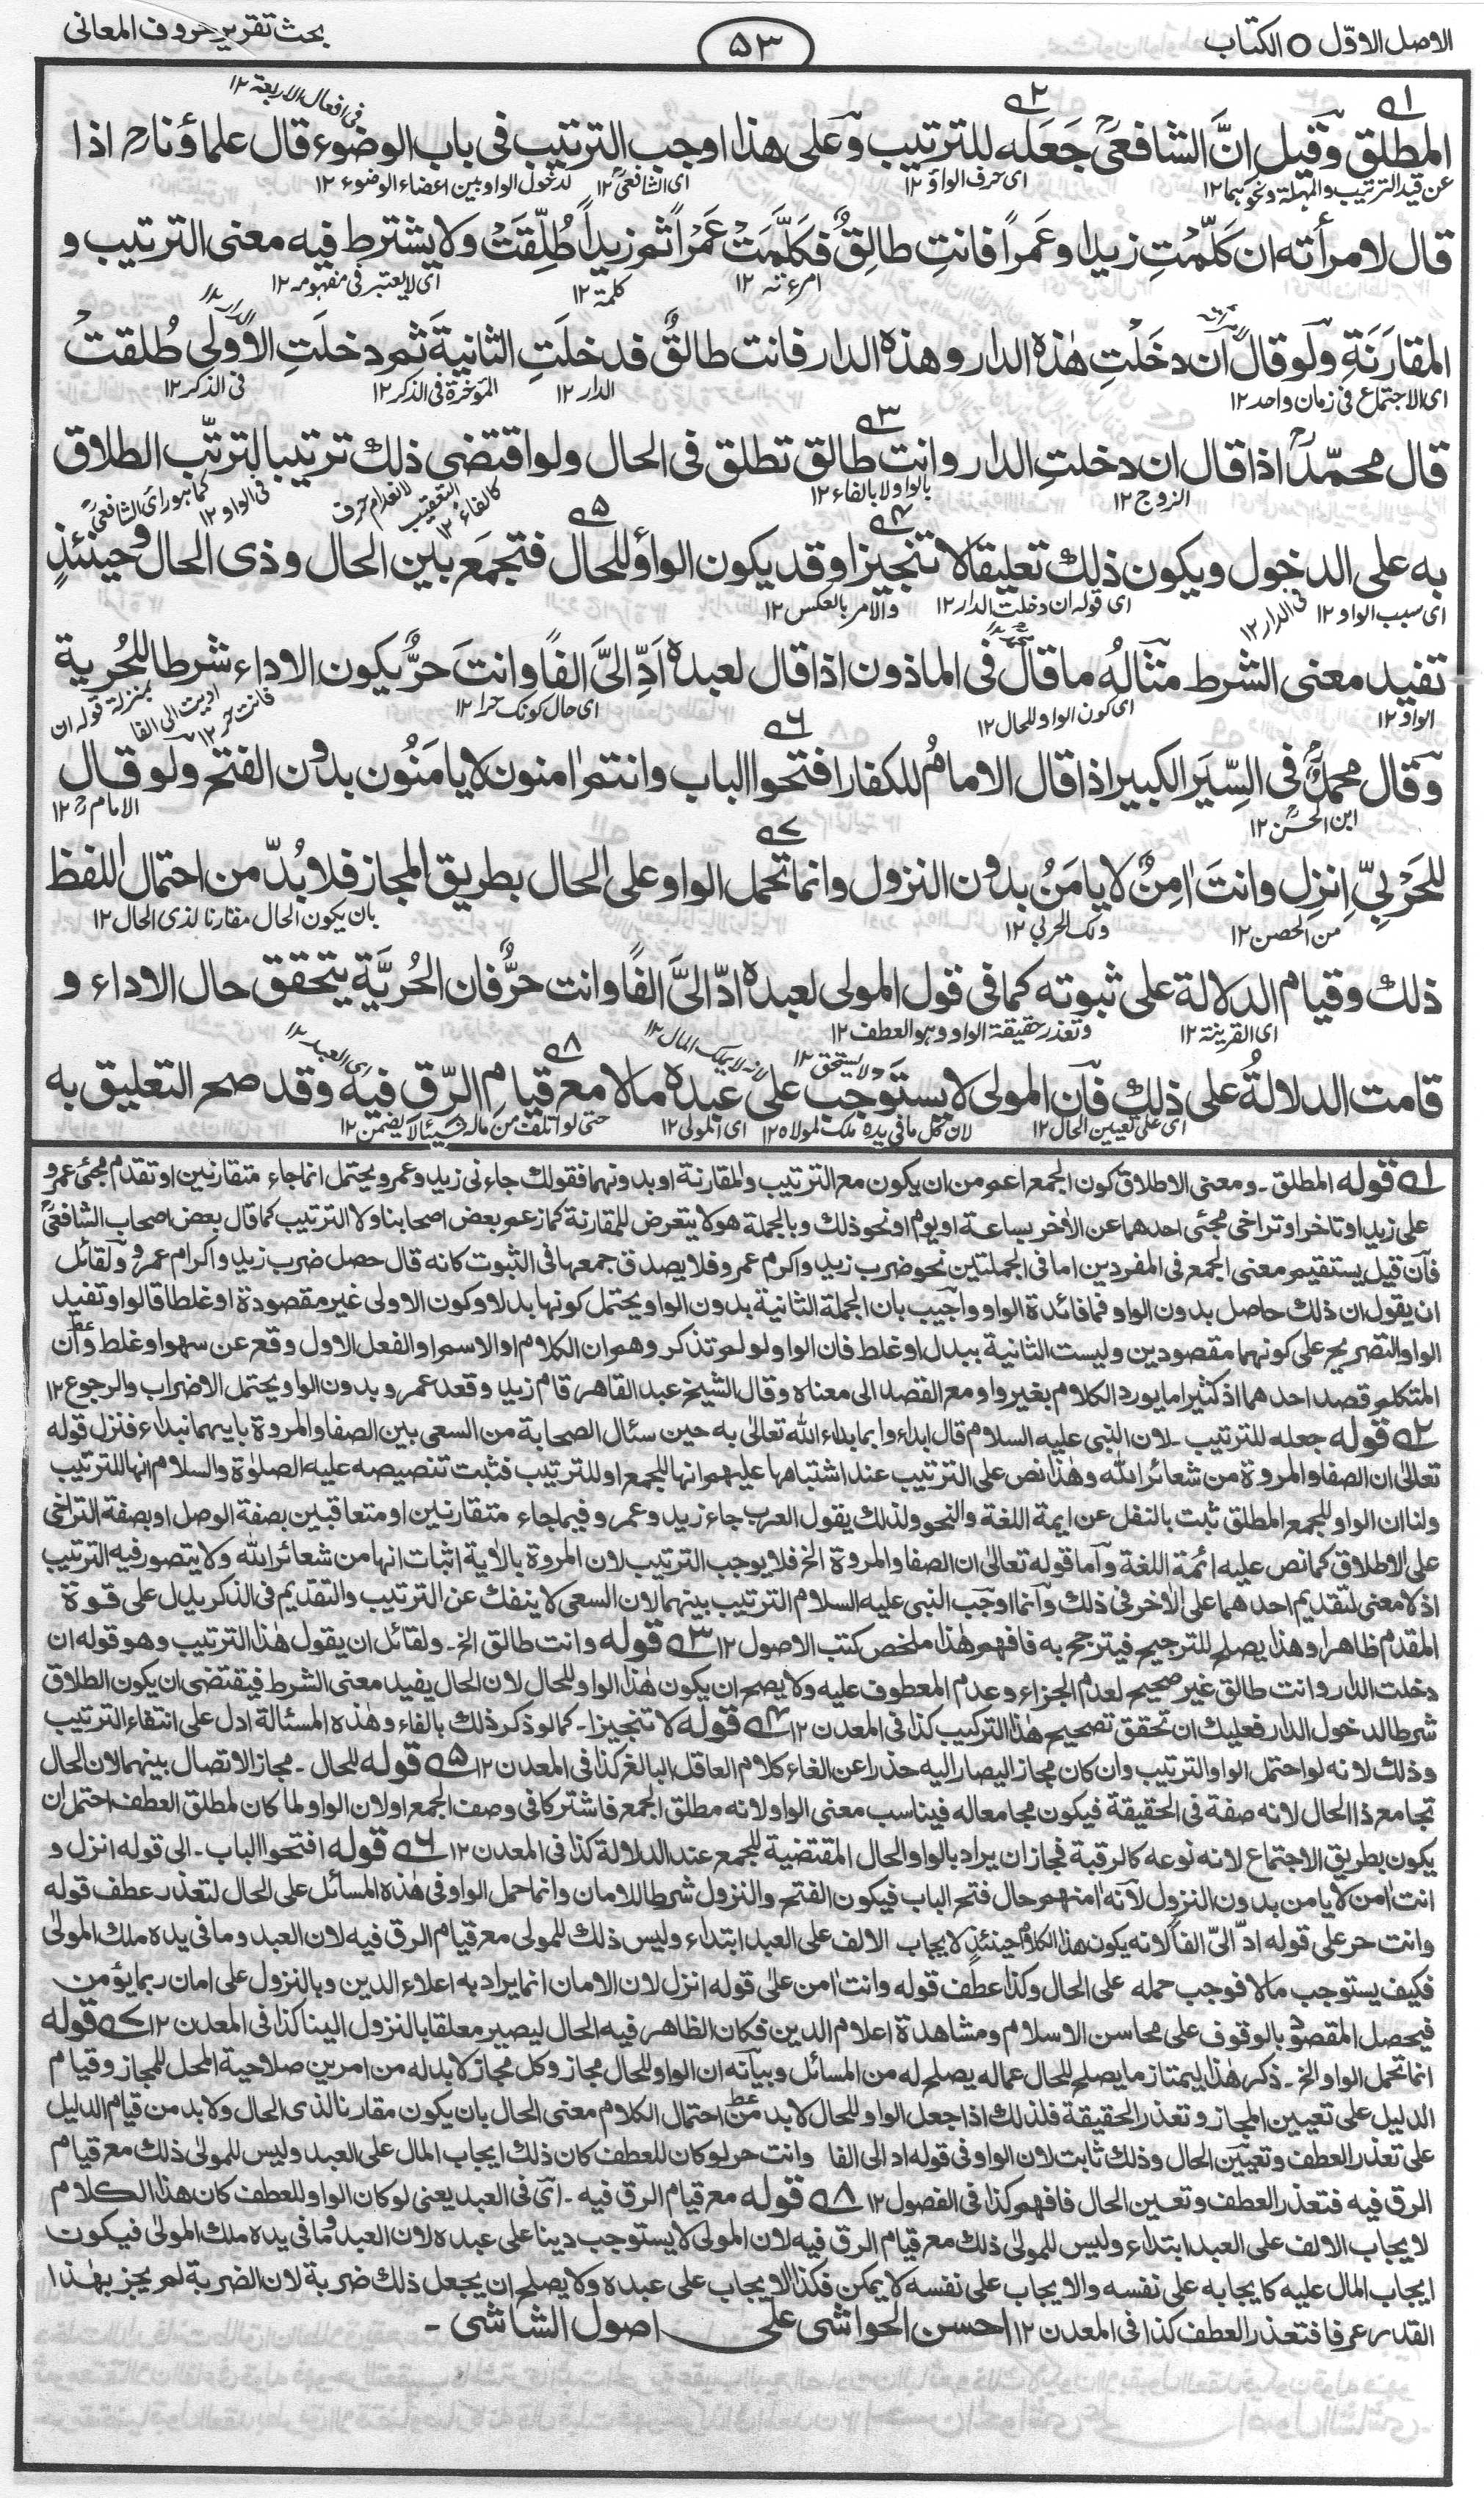 الاصل الاوّل ○ الكتاب
۵۳
بحث تقرير حروف المعانى
فى افعال الاربعة ١٢
المطلق وقيل انَّ الشافعىؒ جَعَله للترتيب وعلى هذا اوجب الترتيب فى باب الوضوء قال علماؤناؒ اذا
عن قيد الترتيب والمهلة ونحوهما ١٢ اى حرف الواو ١٢ اى الشافعىؒ ١٢ لدخول الواو بين اعضاء الوضوء ١٢
قال لامرأته ان كَلَّمْتِ زيدا وعَمراً فانتِ طالِقٌ فكَلَّمَتْ عَمْراً ثم زيداً طُلِّقَتْ ولا يشترط فيه معنى الترتيب و
امرءته ١٢ كلمة ١٢ اى لا يعتبر فى مفهومه ١٢
المقارَنَةِ ولو قال ان دخَلْتِ هٰذه الدار وهذه الدار فانت طالقٌ فدخلَتِ الثانيةَ ثم دخلَتِ الاُولى طُلقتْ
اى الاجتماع فى زمان واحد ١٢ الدار ١٢ المؤخرة فى الذكر ١٢ فى الذكر ١٢
قال محمّدؒ اذا قال ان دخلتِ الدار وانت طالق تطلق فى الحال ولو اقتضى ذلك ترتيبا لترتّب الطلاق
الزوج ١٢ بالواو لا بالفاء ١٢ لانعدام حرف التعقيب كالفاء ١٢ فى الواو ١٢ كما هو رأى الشافعىؒ
به على الدخول ويكون ذلك تعليقا لا تنجيزا وقد يكون الواو للحال فتجمَع بين الحال وذى الحال وحينئذٍ
اى سبب الواو ١٢ فى الدار ١٢ اى قوله ان دخلت الدار ١٢ والامر بالعكس ١٢
تفيد معنى الشرط مثالُه ما قال فى الماذون اذا قال لعبده اَدِّ اِلىَّ الفًا وانتَ حرٌّ يكون الاداء شرطا للحُرية
الواو ١٢ اى كون الواو للحال ١٢ اى حال كونك حرا ١٢ بمنزلة قوله ان اديت الى الفا فانت حر ١٢
وقال محمدٌؒ فى السِّيَر الكبير اذا قال الامامُ للكفار افتحوا الباب وانتم اٰمنون لا يامَنُون بدون الفتح ولو قال
ابن الحسنؒ ١٢ الامامؒ ١٢
للحَرْبِيِّ اِنزِل وانتَ اٰمِنٌ لا يامَنُ بدون النزول وانما تحمل الواو على الحال بطريق المجاز فلا بُدّ من احتمال اللفظ
من الحصن ١٢ ذلك الحربي ١٢ بان يكون الحال مقارنا لذى الحال ١٢
ذلك وقيام الدلالة على ثبوته كما فى قول المولى لعبده ادّ الىَّ الفًا وانت حرٌّ فان الحُريَّة يتحقق حال الاداء و
اى القرينة ١٢ وتعذر حقيقة الواو وهو العطف ١٢
قامت الدلالةُ على ذلك فان المولى لا يستوجب على عبده مالا مع قيام الرّق فيه وقد صح التعليق به
اى على تعيين الحال ١٢ لان كل ما فى يده ملك لمولاه ١٢ اى المولى ١٢ حتى لو اتلف من ماله شيئا لا يضمن ١٢
١ قوله المطلق۔ ومعنى الاطلاق كون الجمع اعم من ان يكون مع الترتيب والمقارنة او بدونهما فقولك جاءنى زيد وعمرو يحتمل انما جاء متقارنين او تقدم مجئى عمرو
على زيد او تاخر او تراخى مجئى احدهما عن الاٰخر بساعة او يوم او نحو ذلك وبالجملة هو لا يتعرض للمقارنة كما زعم بعض اصحابنا ولا الترتيب كما قال بعض اصحاب الشافعىؒ
فان قيل يستقيم معنى الجمع فى المفردين اما فى الجملتين نحو ضرب زيد واكرم عمرو فلا يصدق جمعها فى الثبوت كانه قال حصل ضرب زيد واكرام عمرو ولقائل
ان يقول ان ذلك حاصل بدون الواو فما فائدة الواو واجيب بان الجملة الثانية بدون الواو يحتمل كونها بدلا وكون الاولى غير مقصودة او غلطا فالواو تفيد
الواو التصريح على كونهما مقصودين وليست الثانية ببدل او غلط فان الواو لو لم تذكر وهم ان الكلام او الاسم او الفعل الاول وقع عن سهو او غلط وان
المتكلم قصد احدهما اذ كثيرا ما يورد الكلام بغير واو مع القصد الى معناه وقال الشيخ عبد القاهر قام زيد وقعد عمرو بدون الواو يحتمل الاضراب والرجوع ١٢
٢ قوله جعله للترتيب۔ لان النبى عليه السلام قال ابداءوا بما بداء الله تعالىٰ به حين سئال الصحابة من السعى بين الصفا والمروة بايهما نبداء فنزل قوله
تعالىٰ ان الصفا والمروة من شعائر الله وهٰذا نص على الترتيب عند اشتباهها عليهم انها للجمع او للترتيب فثبت تنصيصه عليه الصلوٰة والسلام انها للترتيب
ولنا ان الواو للجمع المطلق ثبت بالنقل عن ايمة اللغة والنحو ولذلك يقول العرب جاء زيد وعمرو فيما جاء متقارنين او متعاقبين بصفة الوصل او بصفة التراخى
على الاطلاق كما نص عليه ائمة اللغة واما قوله تعالىٰ ان الصفا والمروة الخ فلا يوجب الترتيب لان المروة بالاٰية اثبات انها من شعائر الله ولا يتصور فيه الترتيب
اذ لا معنى لتقديم احدهما على الاٰخر فى ذلك وانما اوجب النبى عليه السلام الترتيب بينهما لان السعى لا ينفك عن الترتيب والتقديم فى الذكر يدل على قوة
المقدم ظاهرا وهذا يصلح للترجيح فيترجح به فافهم هٰذا ملخص كتب الاصول ١٢ ٣ قوله وانت طالق الخ۔ ولقائل ان يقول هٰذا الترتيب وهو قوله ان
دخلت الدار وانت طالق غير صحيح لعدم الجزاء وعدم المعطوف عليه ولا يصح ان يكون هٰذا الواو للحال لان الحال يفيد معنى الشرط فيقتضى ان يكون الطلاق
شرطا لدخول الدار فعليك ان تحقق تصحيح هٰذا التركيب كذا فى المعدن ١٢ ٤ قوله لا تنجيزا۔ كما لو ذكر ذلك بالفاء وهٰذه المسئالة ادل على انتفاء الترتيب
وذلك لانه لو احتمل الواو الترتيب وان كان مجازا ليصار اليه حذرا عن الغاء كلام العاقل البالغ كذا فى المعدن ١٢ ٥ قوله للحال۔ مجاز الاتصال بينهما لان الحال
تجامع ذا الحال لانه صفة فى الحقيقة فيكون مجامعا له فيناسب معنى الواو لانه مطلق الجمع فاشتركا فى وصف الجمع او لان الواو لما كان لمطلق العطف احتمل ان
يكون بطريق الاجتماع لانه نوعه كالرقبة فجاز ان يراد بالواو الحال المقتضية للجمع عند الدلالة كذا فى المعدن ١٢ ٦ قوله افتحوا الباب۔ الى قوله انزل و
انت اٰمن لا يامن بدون النزول لانه اٰمنهم حال فتح الباب فيكون الفتح والنزول شرطا للامان وانما حمل الواو فى هٰذه المسائل على الحال لتعذر عطف قوله
وانت حر على قوله ادّ الىّ الفا لانه يكون هذا الكلام حينئذٍ لايجاب الالف على العبد ابتداء وليس ذلك للمولى مع قيام الرق فيه لان العبد وما فى يده ملك المولىٰ
فكيف يستوجب مالا فوجب حمله على الحال وكذا عطف قوله وانت اٰمن علىٰ قوله انزل لان الامان انما يراد به اعلاء الدين وبالنزول على امان ربما يؤمن
فيحصل المقصود بالوقوف على محاسن الاسلام ومشاهدة اعلام الدين فكان الظاهر فيه الحال ليصير معلقا بالنزول الينا كذا فى المعدن ١٢ ٧ قوله
انما تحمل الواو الخ۔ ذكر هٰذا ليمتاز ما يصلح للحال عما له يصلح له من المسائل وبيانه ان الواو للحال مجاز وكل مجاز لا بد له من امرين صلاحية المحل للمجاز وقيام
الدليل على تعيين المجاز وتعذر الحقيقة فلذلك اذا جعل الواو للحال لا بد من احتمال الكلام معنى الحال بان يكون مقارنا لذى الحال ولا بد من قيام الدليل
على تعذر العطف وتعيين الحال وذلك ثابت لان الواو فى قوله اد الى الفا وانت حر لو كان للعطف كان ذلك ايجاب المال على العبد وليس للمولىٰ ذلك مع قيام
الرق فيه فتعذر العطف وتعين الحال فافهم كذا فى الفصول ١٢ ٨ قوله مع قيام الرق فيه۔ اى فى العبد يعنى لو كان الواو للعطف كان هٰذا الكلام
لايجاب الالف على العبد ابتداء وليس للمولىٰ ذلك مع قيام الرق فيه لان المولى لا يستوجب دينا على عبده لان العبد وما فى يده ملك المولىٰ فيكون
ايجاب المال عليه كايجابه على نفسه والايجاب على نفسه لا يمكن فكذا الايجاب على عبده ولا يصلح ان يجعل ذلك ضربة لان الضربة لم يجز بهٰذا
القدر عرفا فتعذر العطف كذا فى المعدن ١٢ احسن الحواشى على اصول الشاشى ۔